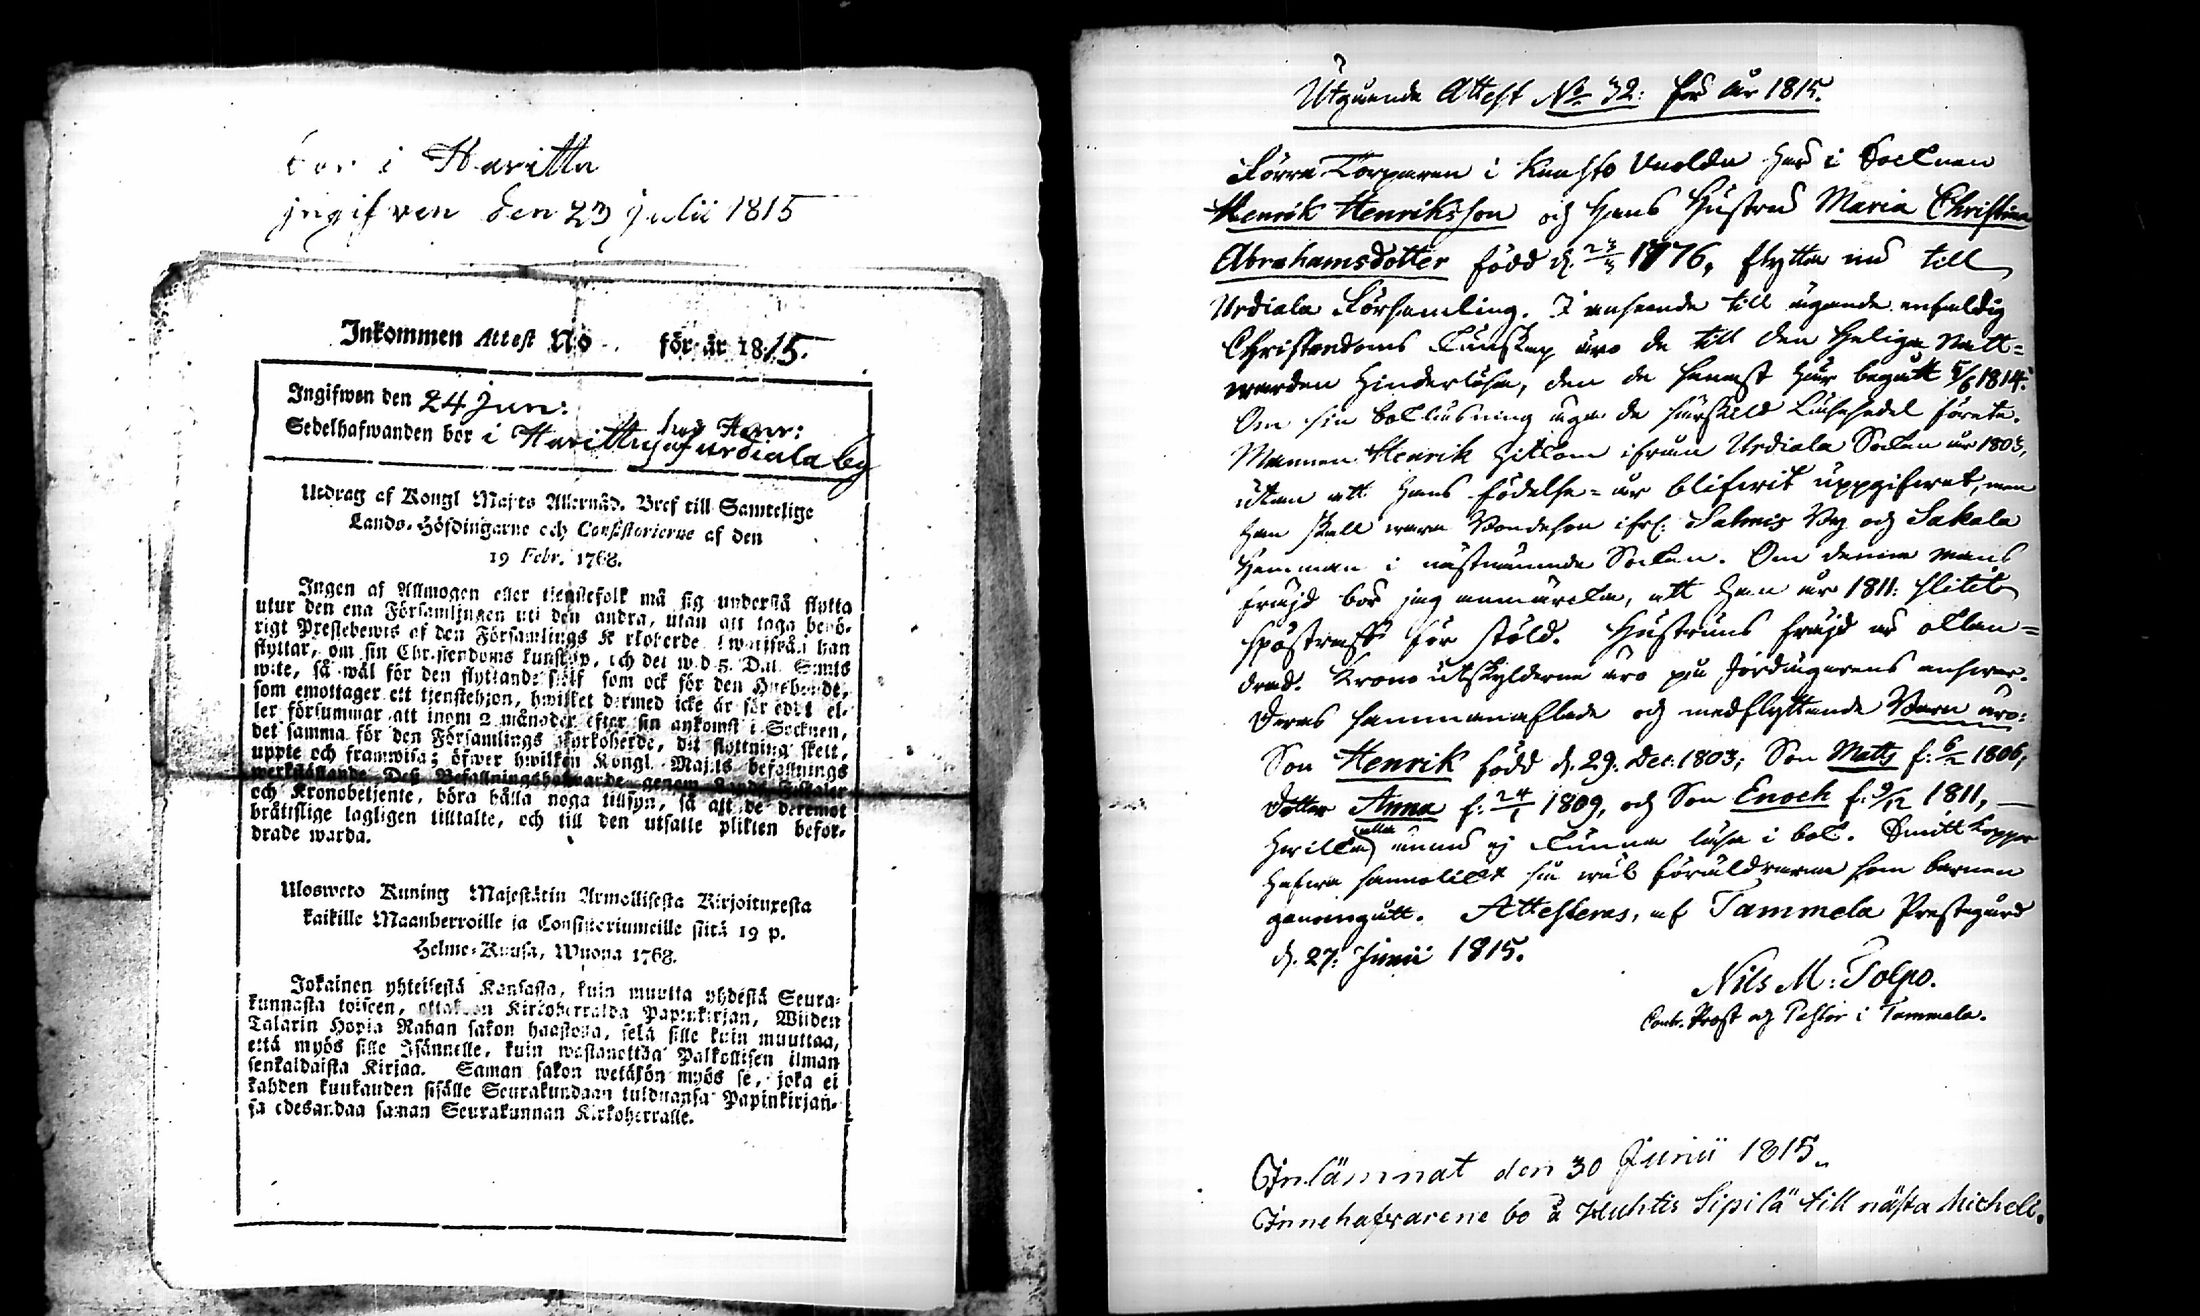 bor i Haritta
jngifven den 23 julii 1815
Inkommen Attest No för år 1815.
Ingifwen den 24 Jun:
hos Henr:
Sedelhafwanden bor i Haritty af urdiala by
Utdrag af Kongl Maj:ts Allernåd. Bref till Samtelige
Lands-Höfdingarne och Consistorierne af den
19 Febr. 1768.
Ingen af Allmogen eller tienstefolk må sig understå flytta
utur den ena Församlingen uti den andra, utan att taga behö-
rigt Prestebewis af den Församlings Kyrkoherde, hwarifrån han
flyttar, om sin Christendoms kunskap, och det wid 5. Dal. S:mts
wite, så wäl för den flyttande sjelf som ock för den Husbonde,
som emottager ett tjenstehjon, hwilket dermed icke är försedt el-
ler försummar att inom 2 månader efter sin ankomst i Socknen,
det samma för den Församlings Kyrkoherde, dit flyttning skett,
uppte och framwisa; öfwer hwilken Kongl. Maj:ts befallnings
werkställande Deß Befallningshafwande genom Lands-Fiskaler
och Kronobetjente, böra hålla noga tillsyn, så att de deremot
bråttslige lagligen tilltalte, och till den utsatte plikten befor-
drade warda.
Ulosweto Kuning Majestätin Armollisesta Kirjoituxesta
kaikille Maanherroille ja Consistoriumeille siitä 19 p.
Helme-Kuusa, Wuona 1768.
Jokainen yhteisestä Kansasta, kuin muutta yhdestä Seura-
kunnasta toiseen, ottakoon Kirkoherralda Papinkirjan, Wiiden
Talarin Hopia Rahan sakon haastolla, sekä sille kuin muuttaa,
että myös sille Isännelle, kuin wastanottaa Palkollisen ilman
senkaldaista Kirjaa. Saman sakon wetäkön myös se, joka ei
kahden kuukauden sisälle Seurakundaan tulduansa Papinkirjan-
sa edesandaa saman Seurakunnan Kirkoherralle.
Utgående Attest No 32: för år 1815.
Förra Torparen i Kuusto Uuolda här i Socknen
Henrik Henriksson och Hans Hustru Maria Christina
Abrahamsdotter född d. 23/3 1776, flytta nu till
Urdiala Församling. I anseende till ägande enfaldig
Christendoms kunskap äro de till den Heliga Natt=
warden hinderlöse, den de senast här begått 5/6 1814.
Om sin bokläsning äga de särskild Läsesedel förete.
Mannen Henrik hitkom ifrån Urdiala Socken år 1803,
utan att hans födelse=år blifwit uppgifwet, men
han skall wara Bondeson ifr. Salmis By och Sakala
Hemman i nästnämnde Socken. Om denna mans
frejd bör jag anmärka, att han år 1811: slitit
spöstraff för stöld. Hustruns frejd är oklan=
drad. Krono utskylderna äro på Jordägarens answar.
Deras sammanaflade och medflyttande Barn äro:
Son Henrik född d. 29. Dec. 1803; Son Matts f. 6/2 1806,
dotter Anna f: 24/1 1809, och Son Enoch f: 9/12 1811, —
hwilka alla ännu ej kunna läsa i bok. Smitt Koppor
hafwa sannolikt så wäl föräldrarna som barnen
genomgått. Attesteras, af Tammela Prestegård
d. 27: Junii 1815.
Nils M: Tolpo.
Contr. Prost och Pastor i Tammela.
Inlämnat den 30 Junii 1815.
Innehafvarene bo å Huhtis Sipilä till nästa Micheli.